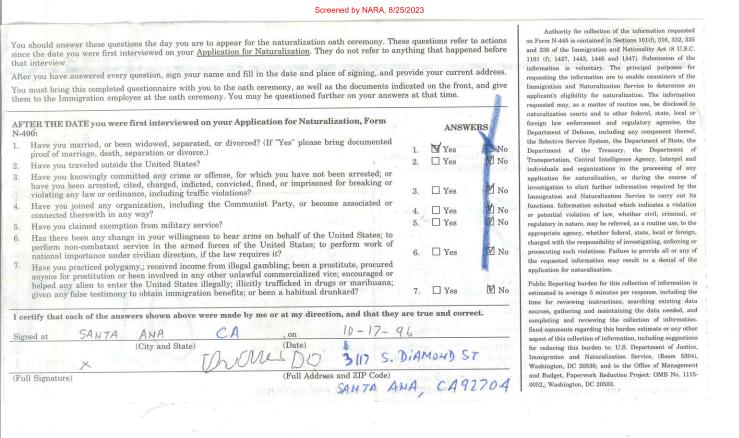 Screened by NARA, 8/25/2023
You should answer these questions the day you are to appear for the naturalization oath ceremony. These questions refer to actions
since the date you were first interviewed on your Application for Naturalization. They do not refer to anything that happened before
that interview.
After you have answered every question, sign your name and fill in the date and place of signing, and provide your current address.
You must bring this completed questionnaire with you to the oath ceremony, as well as the documents indicated on the front, and give
them to the Immigration employee at the oath ceremony. You may be questioned further on your answers at that time.
AFTER THE DATE you were first interviewed on your Application for Naturalization, Form
N-400:
ANSWERS
1. Have you married, or been widowed, separated, or divorced? (If "Yes" please bring documented
proof of marriage, death, separation or divorce.)
1. Yes No
2. Have you traveled outside the United States?
2. Yes No
3. Have you knowingly committed any crime or offense, for which you have not been arrested; or
have you been arrested, cited, charged, indicted, convicted, fined, or imprisoned for breaking or
violating any law or ordinance, including traffic violations?
3. Yes No
4. Have you joined any organization, including the Communist Party, or become associated or
connected therewith in any way?
4. Yes No
5. Have you claimed exemption from military service?
5. Yes No
6. Has there been any change in your willingness to bear arms on behalf of the United States; to
perform non-combatant service in the armed forces of the United States; to perform work of
national importance under civilian direction, if the law requires it?
6. Yes No
7. Have you practiced polygamy,; received income from illegal gambling; been a prostitute, procured
anyone for prostitution or been involved in any other unlawful commercialized vice; encouraged or
helped any alien to enter the United States illegally; illicitly trafficked in drugs or marihuana;
given any false testimony to obtain immigration benefits; or been a habitual drunkard?
7. Yes No
I certify that each of the answers shown above were made by me or at my direction, and that they are true and correct.
Signed at SANTA ANA CA , on 10-17-96
(City and State) (Date)
X 3117 S. DIAMOND ST
(Full Signature) (Full Address and ZIP Code)
SANTA ANA, CA 92704
Authority for collection of the information requested
on Form N-445 is contained in Sections 101(f), 316, 332, 335
and 336 of the Immigration and Nationality Act (8 U.S.C.
1101 (f), 1427, 1443, 1446 and 1447). Submission of the
information is voluntary. The principal purposes for
requesting the information are to enable examiners of the
Immigration and Naturalization Service to determine an
applicant's eligibility for naturalization. The information
requested may, as a matter of routine use, be disclosed to
naturalization courts and to other federal, state, local or
foreign law enforcement and regulatory agencies, the
Department of Defense, including any component thereof,
the Selective Service System, the Department of State, the
Department of the Treasury, the Department of
Transportation, Central Intelligence Agency, Interpol and
individuals and organizations in the processing of any
application for naturalization, or during the course of
investigation to elicit further information required by the
Immigration and Naturalization Service to carry out its
functions. Information solicited which indicates a violation
or potential violation of law, whether civil, criminal, or
regulatory in nature, may be referred, as a routine use, to the
appropriate agency, whether federal, state, local or foreign,
charged with the responsibility of investigating, enforcing or
prosecuting such violations. Failure to provide all or any of
the requested information may result in a denial of the
application for naturalization.
Public Reporting burden for this collection of information is
estimated to average 5 minutes per response, including the
time for reviewing instructions, searching existing data
sources, gathering and maintaining the data needed, and
completing and reviewing the collection of information.
Send comments regarding this burden estimate or any other
aspect of this collection of information, including suggestions
for reducing this burden to: U.S. Department of Justice,
Immigration and Naturalization Service, (Room 5304),
Washington, DC 20536; and to the Office of Management
and Budget, Paperwork Reduction Project: OMB No. 1115-
0052,; Washington, DC 20503.